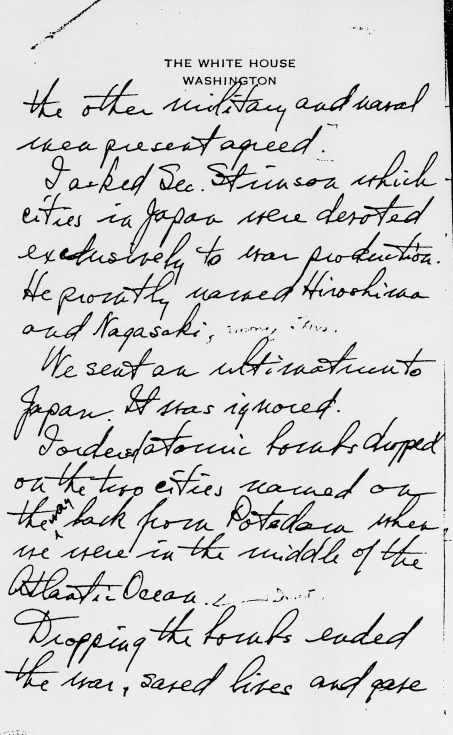 THE WHITE HOUSE
WASHINGTON
the other military and naval
men present agreed.
I asked Sec. Stimson which
cities in Japan were devoted
exclusively to war production.
He promtly named Hiroshima
and Nagasaki, among others.
We sent an ultimatum to
Japan. It was ignored.
I ordered atomic bombs dropped
on the two cities named on
the way back from Potsdam when
we were in the middle of the
Atlantic Ocean.
Dropping the bombs ended
the war, saved lives and gave